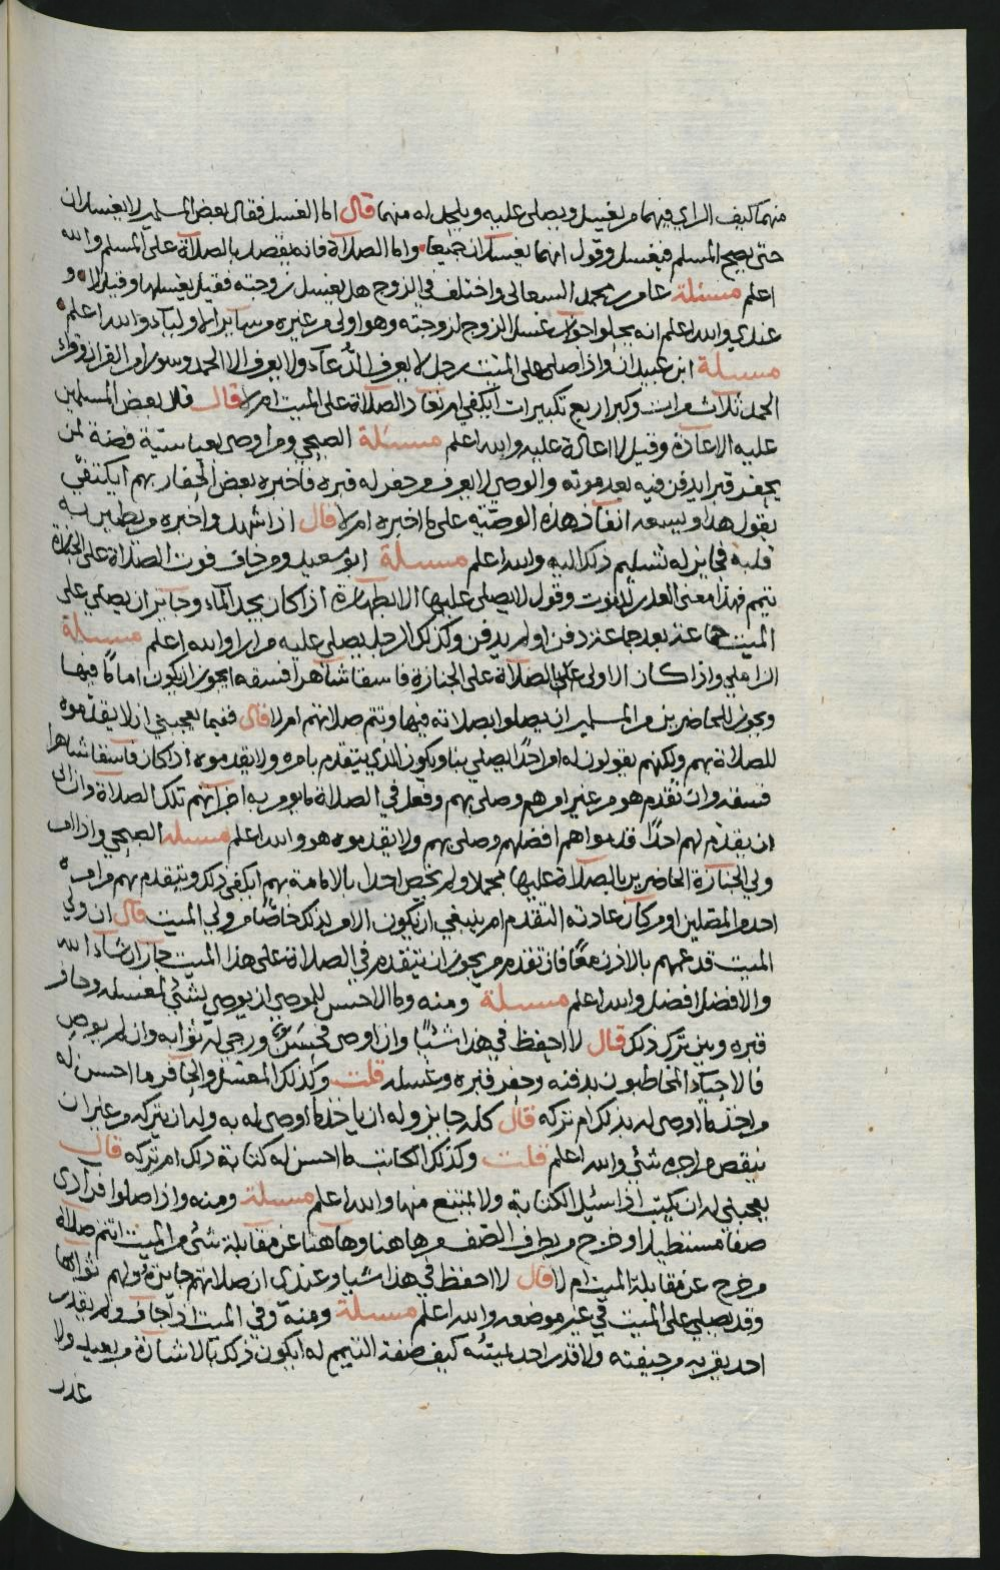 منهما كيف الراي فيهما من يغسل ويصلى عليه ويلحد له منهما قال اما الغسل فقال بعض المسلمين لا يغسلان
حتى يصح المسلم فيغسل وقول انهما يغسلان جميعا واما الصلاة فانه يقصد بالصلاة على المسلم والله
اعلم مسئلة عامر بن محمد السعالي واختلف في الزوج هل يغسل زوجته فقيل يغسلها وقيل لا و
عندي والله اعلم انه يحلوا جواز غسل الزوج لزوجته وهو اولى من غيره من ساير الاولياء والله اعلم
مسئلة ابن عبيدان واذا صلى على الميت رجل لا يعرف الدعآء ولا يعرف الا الحمد وسورا من القران وقرا
الحمد ثلاث مرات وكبر اربع تكبيرات ايكفي ام تعاد الصلاة على الميت ام لا قال قال بعض المسلمين
عليه الاعادة وقيل لا اعادة عليه والله اعلم مسئلة الصبحي ومن اوصى بعباسية فضة لمن
يحفر قبرا يدفن فيه بعد موته والوصي لا يعرف من حفر له قبره فاخبره بعض الحفار بهم ايكتفي
بقول هذا ويسعه انفاذ هذه الوصية على ما اخبره ام لا قال اذا شهد واخبره من يطمئن به
قلبه فجايز له تسليم ذلك اليه والله اعلم مسئلة ابو سعيد ومن خاف فوت الصلاة على الجنازة
تيمم فهذا معنى العذر للفوت وقول لا يصلي عليها الا بطهارة اذا كان يجد المآء وجايز ان يصلي على
الميت جماعة بعد جماعة دفن او لم يدفن وكذلك الرجل يصلي عليه مرارا والله اعلم مسئلة
الزاملي واذا كان الاولى على الصلاة على الجنازة فاسقا شاهرا فسقه ايجوز ان يكون اماما فيها
ويجوز للحاضرين من المسلمين ان يصلوا بصلاته فيها وتتم صلاتهم ام لا قال ففيما يعجبني ان لا يقدموه
للصلاة بهم ولكنهم يقولون له امر احدا ليصلي بنا ويكون الذي يتقدم بامره ولا يقدموه اذا كان فاسقا شاهرا
فسقه وان تقدم هو من غير امرهم وصلى بهم وفعل في الصلاة ما يومر به اجزأتهم تلك الصلاة وان ابى
ان يقدم لهم احدا قدموا هم افضلهم وصلى بهم ولا يقدموه هو والله اعلم مسئلة الصبحي واذا امر
ولي الجنازة الحاضرين بالصلاة عليها مجملا ولم يخص احدا بالامامة بهم ايكفي ذلك ويتقدم بهم من امره
احد من المصلين او من كان عادته التقدم ام ينبغي ان يكون الامر بذلك خاصا من ولي الميت قال ان ولي
الميت قد عمهم بالاذن معا فان تقدم من يجوز ان يتقدم في الصلاة على هذا الميت جاز ان شاء الله
والافضل افضل والله اعلم مسئلة ومنه وما الاحسن للموصي ان يوصي بشئ لمغسله وحافر
قبره وبين ترك ذلك قال لا احفظ في هذا شيئا وان اوصى فحسن ورجي له ثوابه وان لم يوص
فالاحياء المخاطبون بدفنه وحفر قبره وغسله قلت وكذلك المغسل والحافر ما احسن له
من اخذ ما اوصى له بذلك ام تركه قال كله جايز وله ان ياخذ ما اوصى له به وله ان يتركه من غير ان
ينقص من اجره شئ والله اعلم قلت وكذلك الكاتب ما احسن له كتابة ذلك ام تركه قال
يعجبني له ان يكتب اذا سئل الكتابة ولا يمتنع منها والله اعلم مسئلة ومنه واذا صلوا فرادى
صفا مستطيلا وخرج من بطرف الصف من هاهنا وهاهنا عن مقابلة شئ من الميت اتتم صلاة
من خرج عن مقابلة الميت ام لا قال لا احفظ في هذا شيا وعندي ان صلاتهم جايزة ولهم ثوابها
وقد يصلي على الميت في غير موضعه والله اعلم مسئلة ومنه وفي الميت اذا جاف ولم يقدر
احد يقربه من جيفته ولا قدر احد يميته كيف صفة التيمم له ايكون ذلك بالاشارة من بعيد ولا
عذر